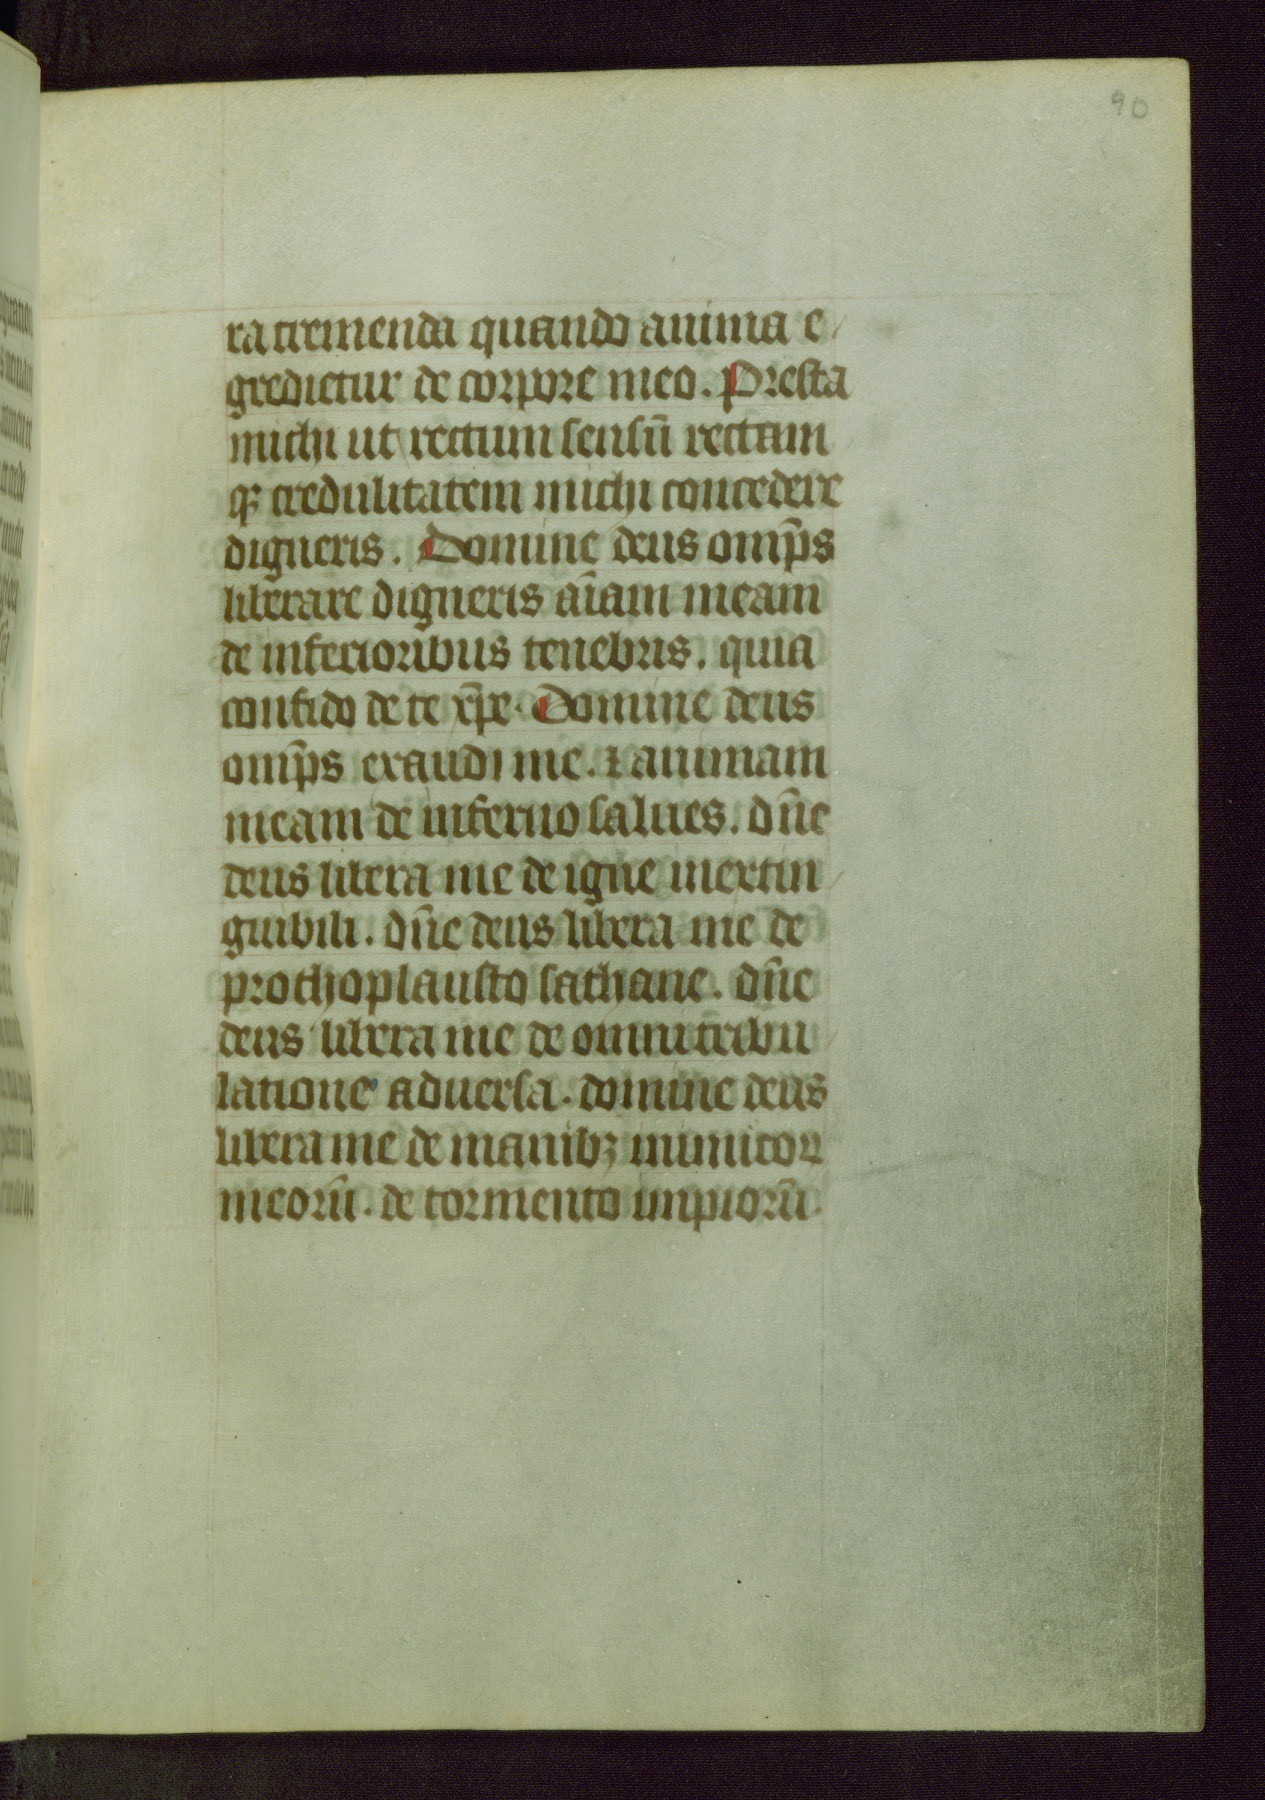 90
ra tremenda quando anima e
gredietur de corpore meo. Presta
michi ut rectum sensū rectam
qꝫ credulitatem michi concedere
digneris. Domine deus omp̄s
liberare digneris aīam meam
de inferioribus tenebris. quia
confido de te xp̄e. Domine deus
omp̄s exaudi me. ⁊ animam
meam de inferno salues. dn̄e
deus libera me de igne inextin
guibili. dn̄e deus libera me de
prothoplausto sathane. dn̄e
deus libera me de omni tribu
latione aduersa. domine deus
libera me de manibꝫ inimicoꝝ
meorū. de tormento impiorū.